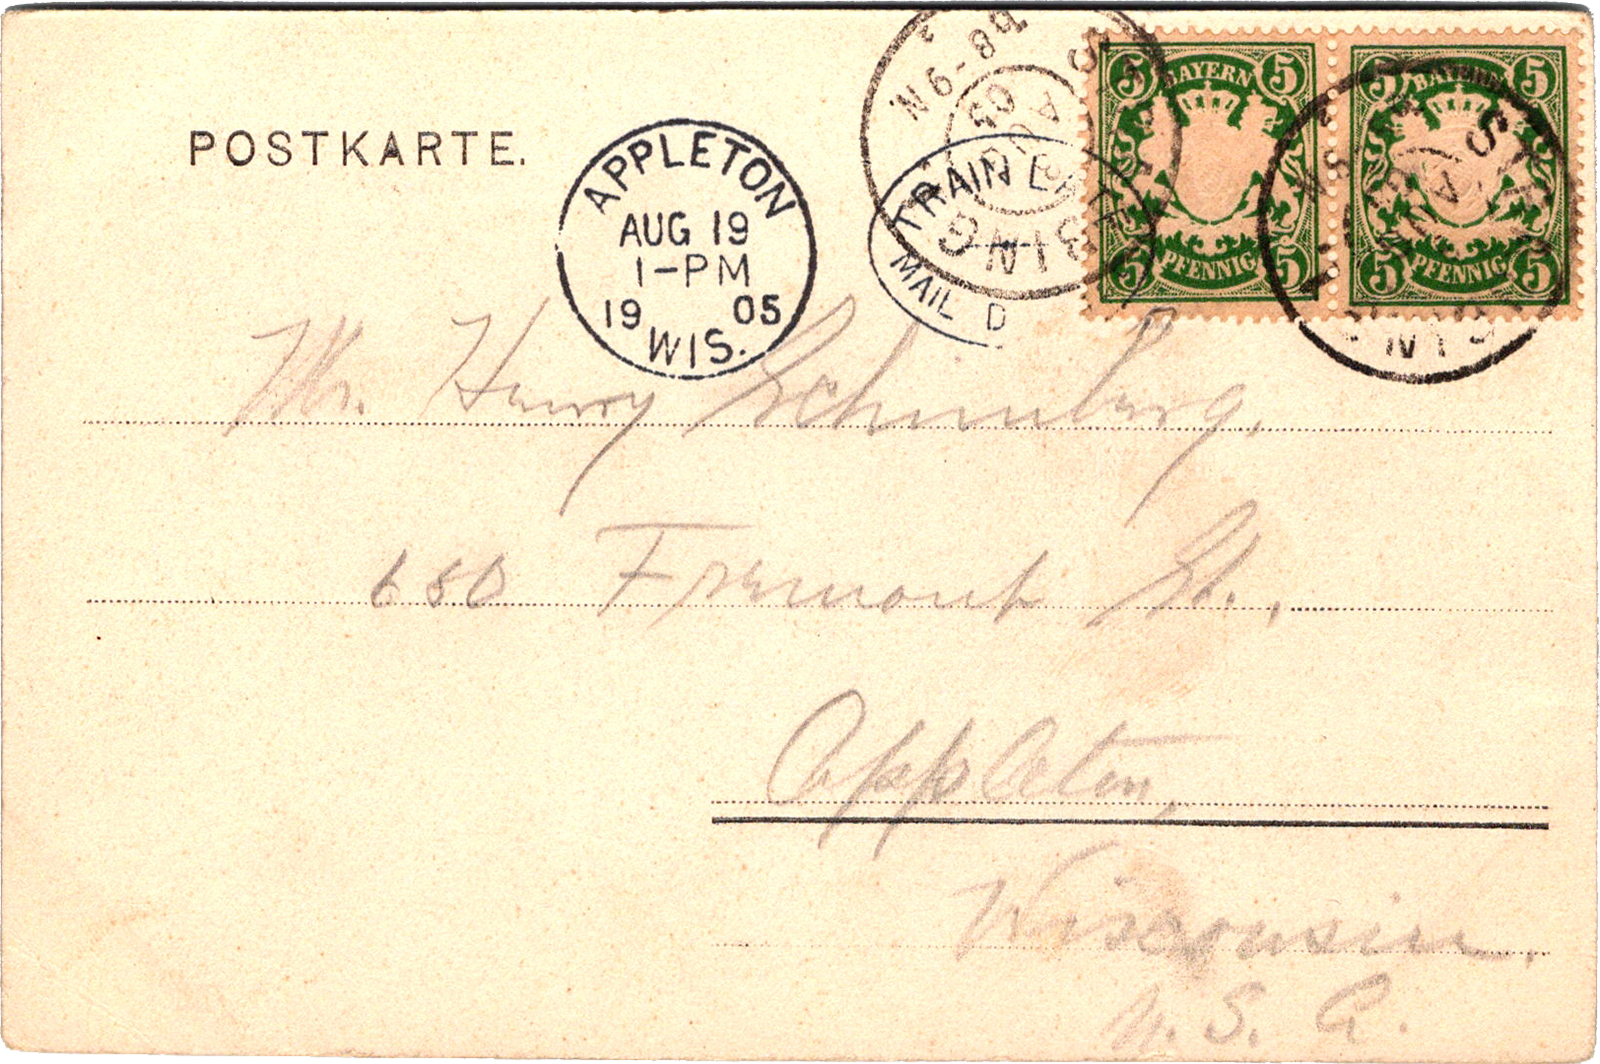 POSTKARTE.
APPLETON
AUG 19
1-PM
19 05
WIS.
8-9N.
AUG
05
TRAIN
MAIL D
5 BAYERN 5
5 PFENNIG 5
5 BAYERN 5
5 PFENNIG 5
Mr. Henry Schomberg,
680 Fremont St.,
Appleton,
Wisconsin,
U. S. A.